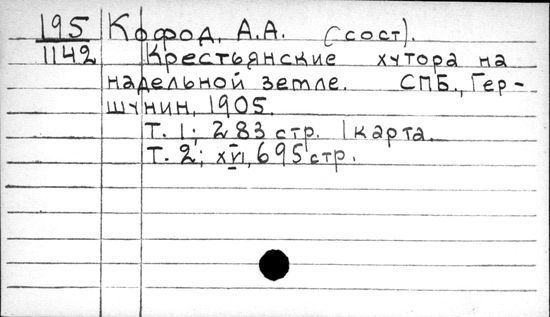 195 Кофод, А.А. (сост).
1142 Крестьянские хутора на
надельной земле. СПБ., Гер-
шунин, 1905.
Т. 1; 283 стр. 1 карта.
Т. 2; XVI, 695 стр.